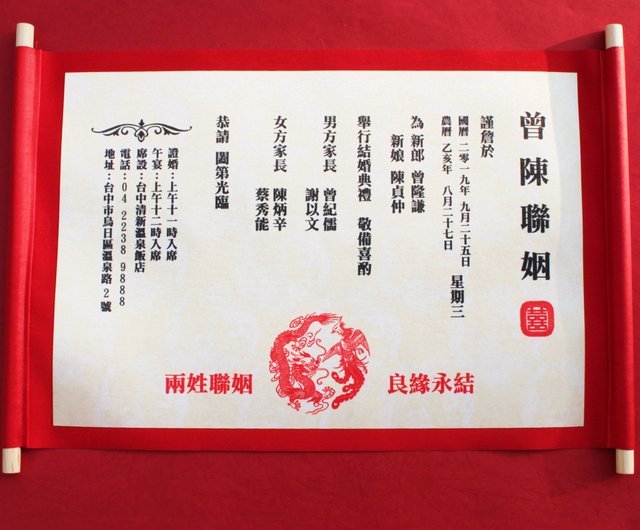 曾陳聯姻
囍
謹詹於
國曆 二零一九年 九月二十五日
農曆 乙亥年 八月二十七日
星期三
為 新郎 曾隆謙
新娘 陳貞仲
舉行結婚典禮 敬備喜酌
男方家長 曾紀儒
謝以文
女方家長 陳炳辛
蔡秀能
恭請 闔第光臨
證婚：上午十一時入席
午宴：上午十二時入席
席設：台中清新溫泉飯店
電話：04 2238 9888
地址：台中市烏日區溫泉路2號
兩姓聯姻
良緣永結